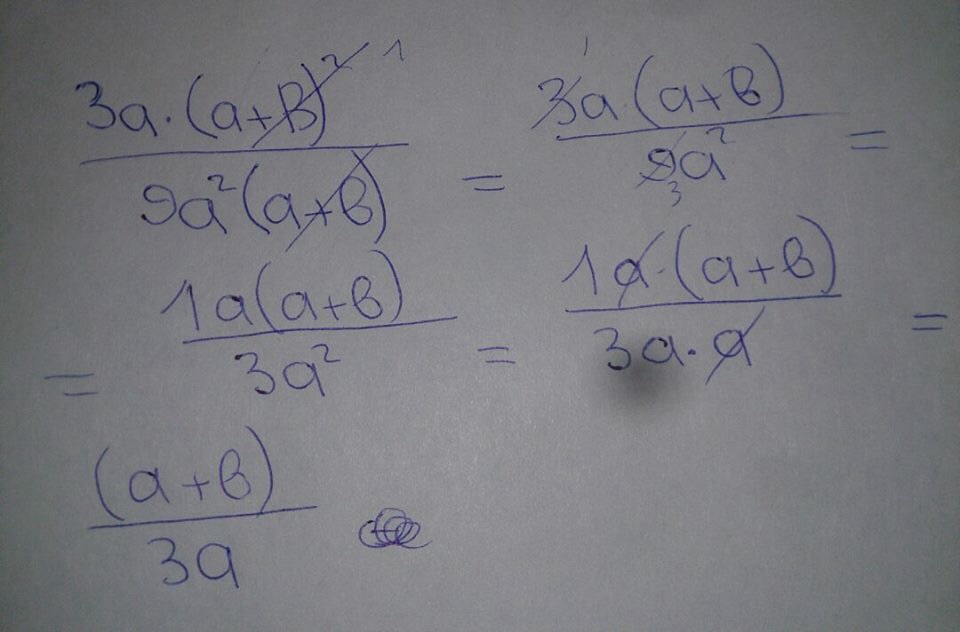 3a·(a+b)² 1 / 9a²(a+b) = 1 3a(a+b) / 9 3 a² =
= 1a(a+b) / 3a² = 1a·(a+b) / 3a·a =
(a+b) / 3a